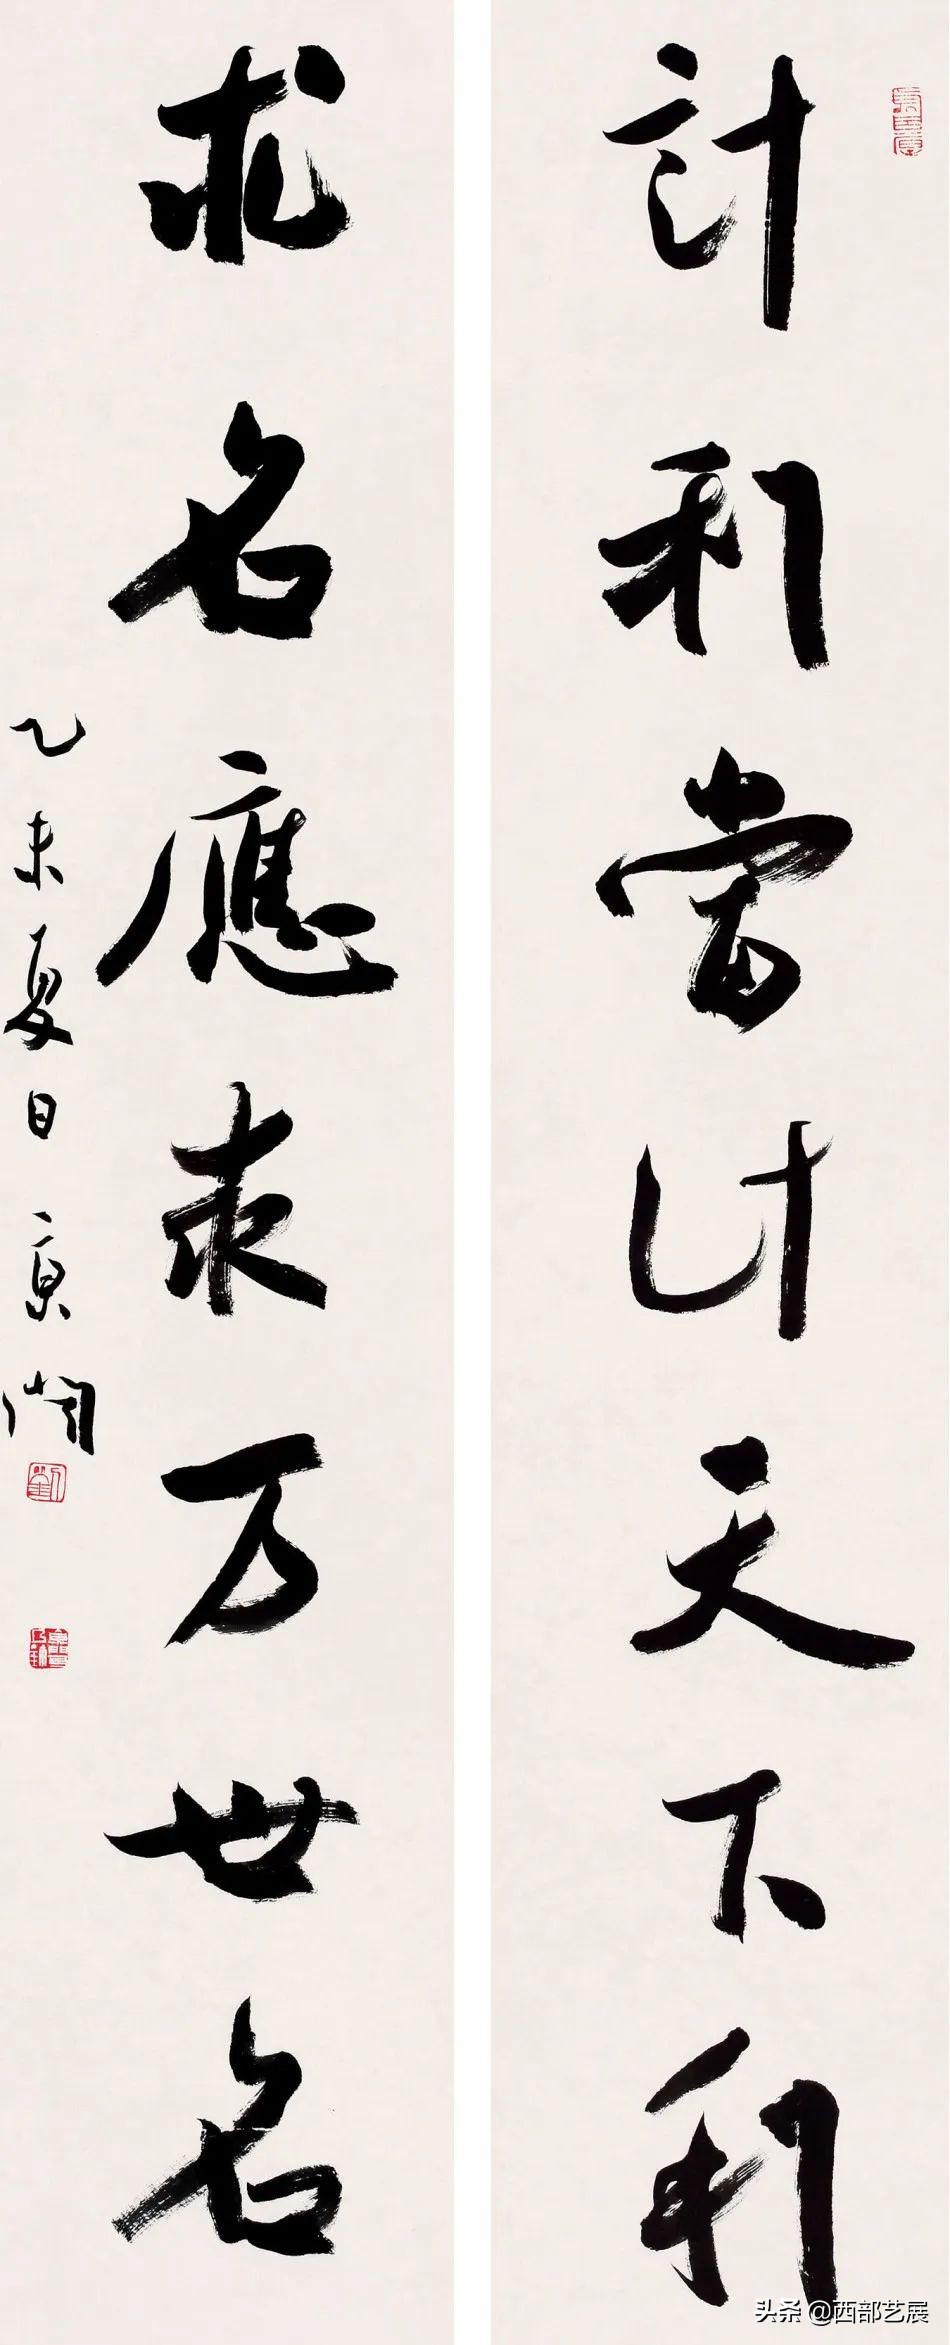 計利當計天下利
求名應求万世名
乙未夏日京闻
头条 @西部艺展